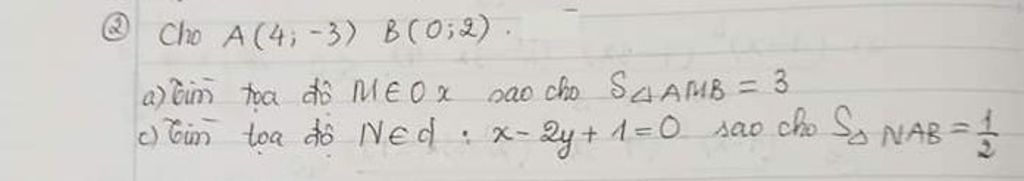 ② Cho A(4; -3) B(0;2).
a) Tìm tọa độ M∈Ox sao cho S△AMB = 3
c) Tìm tọa độ N∈d : x - 2y + 1 = 0 sao cho S△NAB = 1/2